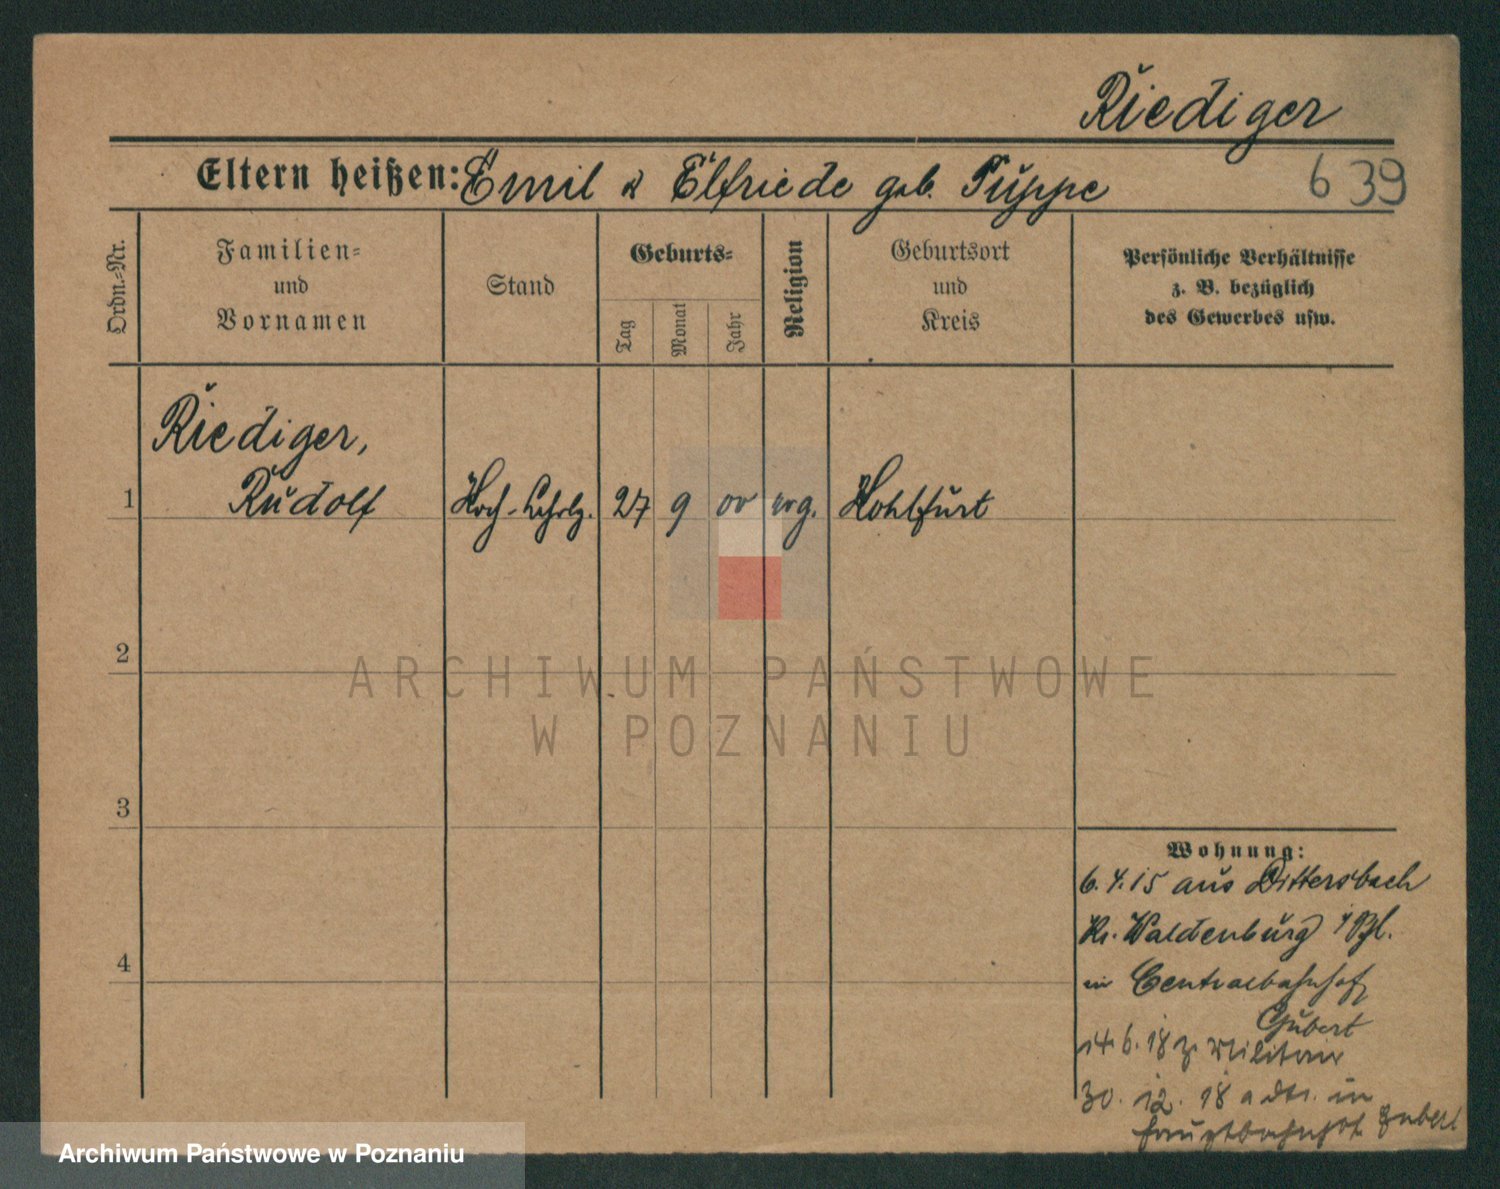 Riediger
Eltern heißen: Emil & Elfriede geb. Puppe
639
Ordn.=Nr.
Familien=
und
Vornamen
Stand
Geburts=
Tag
Monat
Jahr
Religion
Geburtsort
und
Kreis
Persönliche Verhältnisse
z. B. bezüglich
des Gewerbes usw.
Riediger,
1 Rudolf Koch-Lehrlg. 27 9 00 evg. Hohlfurt
2
3
4
ARCHIWUM PAŃSTWOWE
W POZNANIU
Wohnung:
6.4.15 aus Dittersbach
Kr. Waldenburg i/Schl.
in Centralbahnhof
14.6.18 z. Militair
30. 12. 18 in
Hauptbahnhof
Archiwum Państwowe w Poznaniu